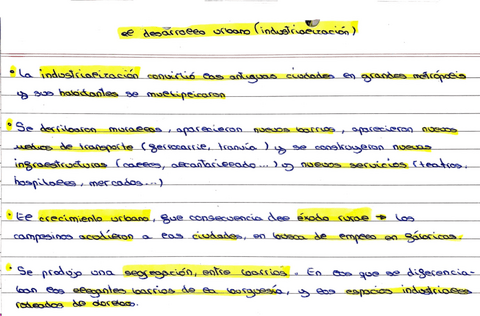 El desarrollo urbano (industrialización)
• La industrialización convirtió las antiguas ciudades en grandes metrópolis
y sus habitantes se multiplicaron
• Se derribaron murallas, aparecieron nuevos barrios, aparecieron nuevos
medios de transporte (ferrocarril, tranvía) y se construyeron nuevas
infraestructuras (calles, alcantarillado...) y nuevos servicios (teatros,
hospitales, mercados...)
• El crecimiento urbano, fue consecuencia del éxodo rural → los
campesinos acudieron a las ciudades, en busca de empleo en fábricas.
• Se produjo una segregación, entre barrios. En los que se diferencia-
ban los elegantes barrios de la burguesía, y los espacios industriales
rodeados de